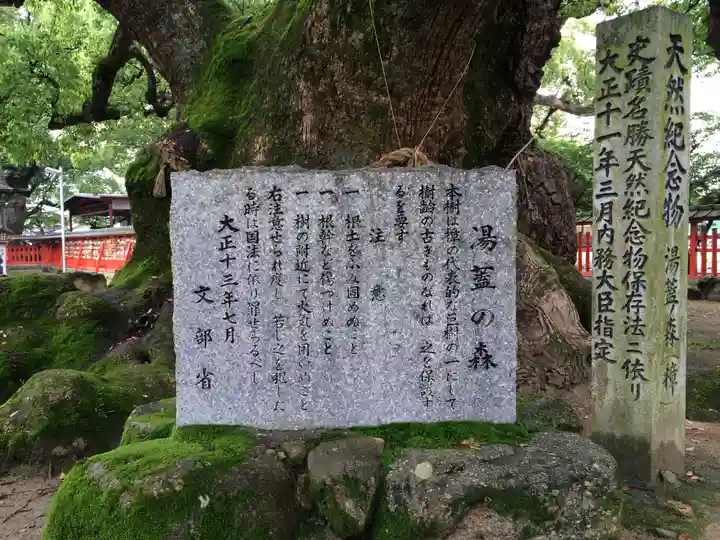 湯蓋の森
本樹は樟の代表的な巨樹の一にして
樹齢の古きものなれば之を保護す
るを要す
注意
一 根土をふみ固めぬこと
一 根幹などを傷つけぬこと
一 樹の附近にて火気を用いぬこと
右注意せられ度し若し之を犯した
る時は国法に依り罪せらるべし
大正十三年七月
文部省
天然紀念物 湯蓋ノ森(樟)
史蹟名勝天然紀念物保存法ニ依リ
大正十一年三月内務大臣指定